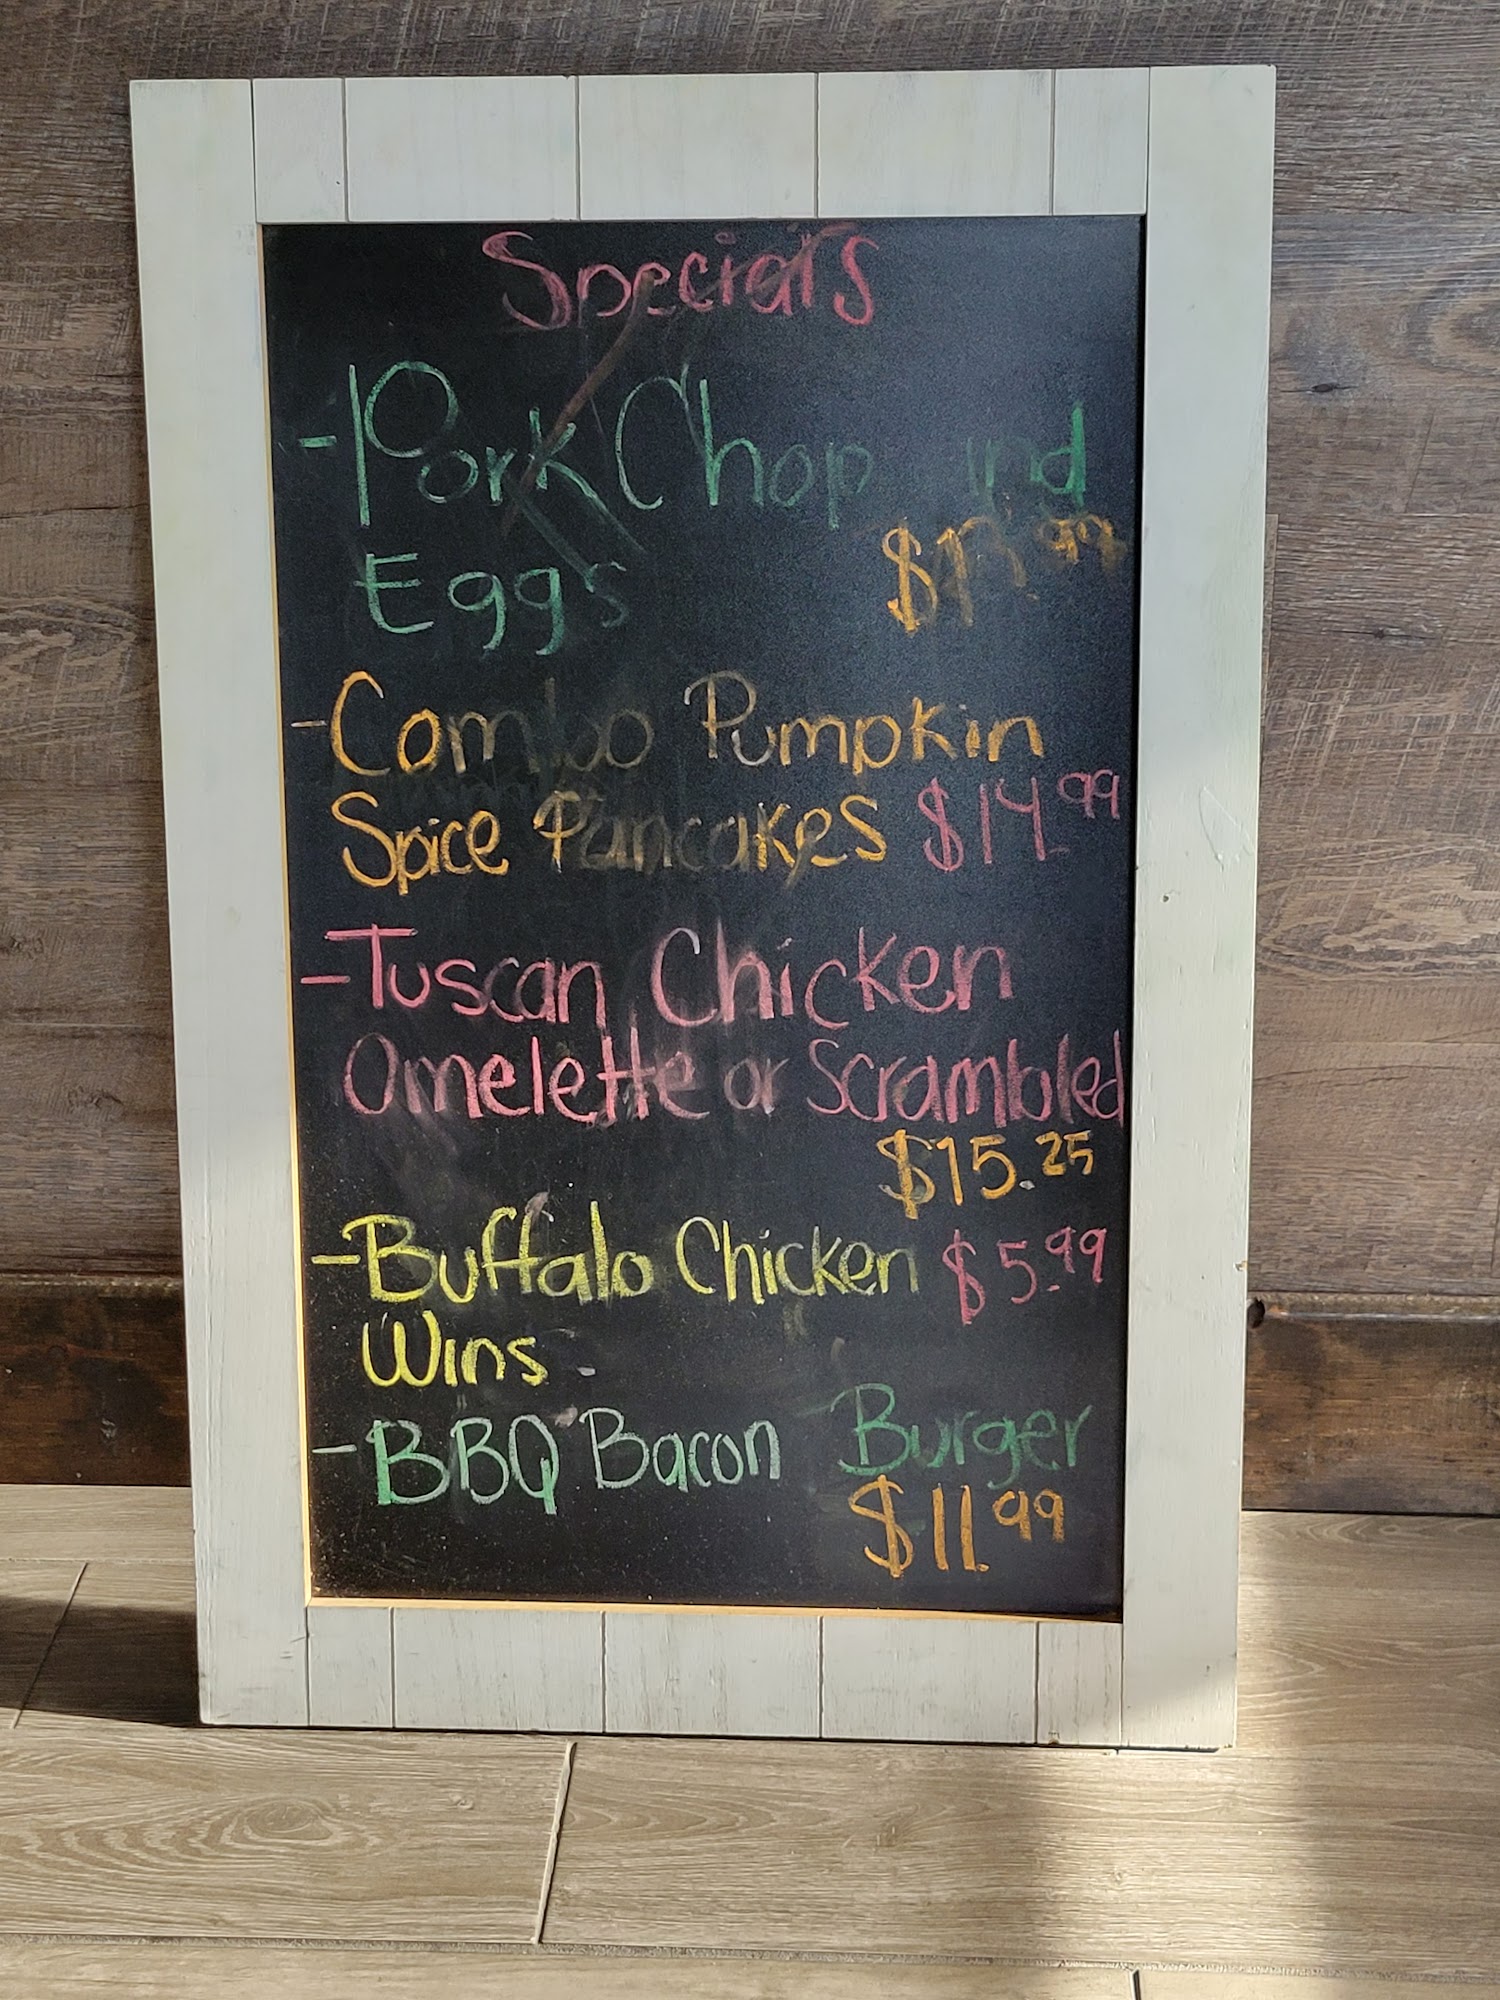 Specials
- Pork Chop and
Eggs
- Combo Pumpkin
Spice Pancakes $14.99
- Tuscan Chicken
Omelette or Scrambled
$15.25
- Buffalo Chicken $5.99
Wins
- BBQ Bacon Burger
$11.99